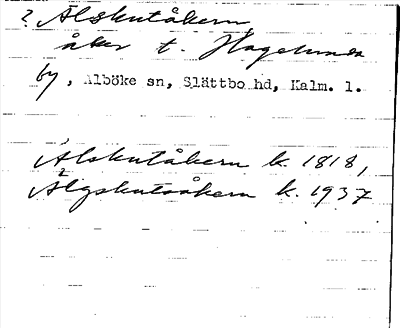 ? Älskutåkern,
åker t. Hagelunda
by, Alböke sn, Slättbo hd, Kalm. l.
Älskutåkern k. 1818,
Älgskutsåkern k. 1937